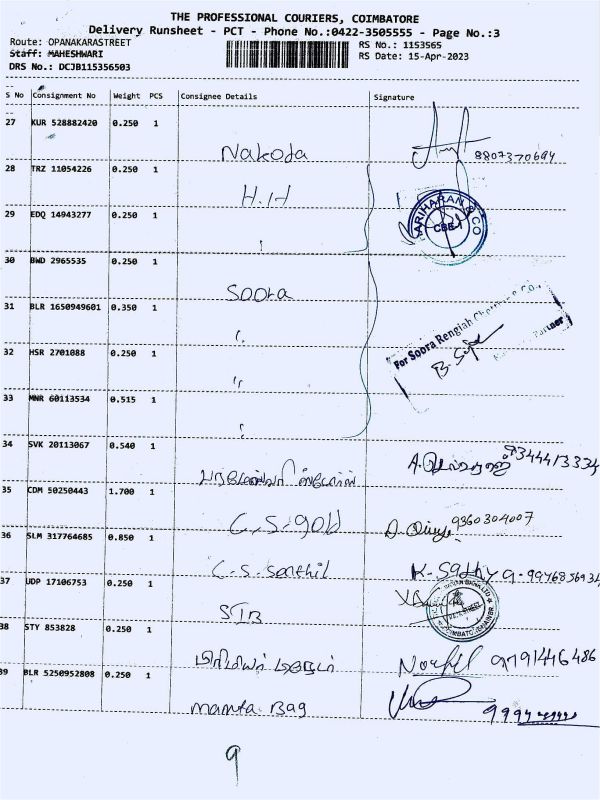 THE PROFESSIONAL COURIERS, COIMBATORE
Delivery Runsheet - PCT - Phone No.:0422-3505555 - Page No.:3
Route: OPANAKARASTREET
RS No.: 1153565
Staff: MAHESHWARI
RS Date: 15-Apr-2023
DRS No.: DCJB115356503
S No Consignment No Weight PCS Consignee Details Signature
27 KUR 528882420 0.250 1
Nakoda 8807370694
28 TRZ 11054226 0.250 1
H.H
29 EDQ 14943277 0.250 1
ARIHARAN & CO
CBE-1
30 BWD 2965535 0.250 1
Soora
31 BLR 1650949601 0.350 1
For Soora Rengiah & Co.,
Partner
32 HSR 2701088 0.250 1
33 MNR 60113534 0.515 1
34 SVK 20113067 0.540 1
9344413334
35 CDM 50250443 1.700 1
C.S-gold 9360304007
36 SLM 317764685 0.850 1
C-S-Senthil K-Sathya-9976856934
37 UDP 17106753 0.250 1
SIB
38 STY 853828 0.250 1
9791446486
39 BLR 5250952808 0.250 1
mamta Bag
9